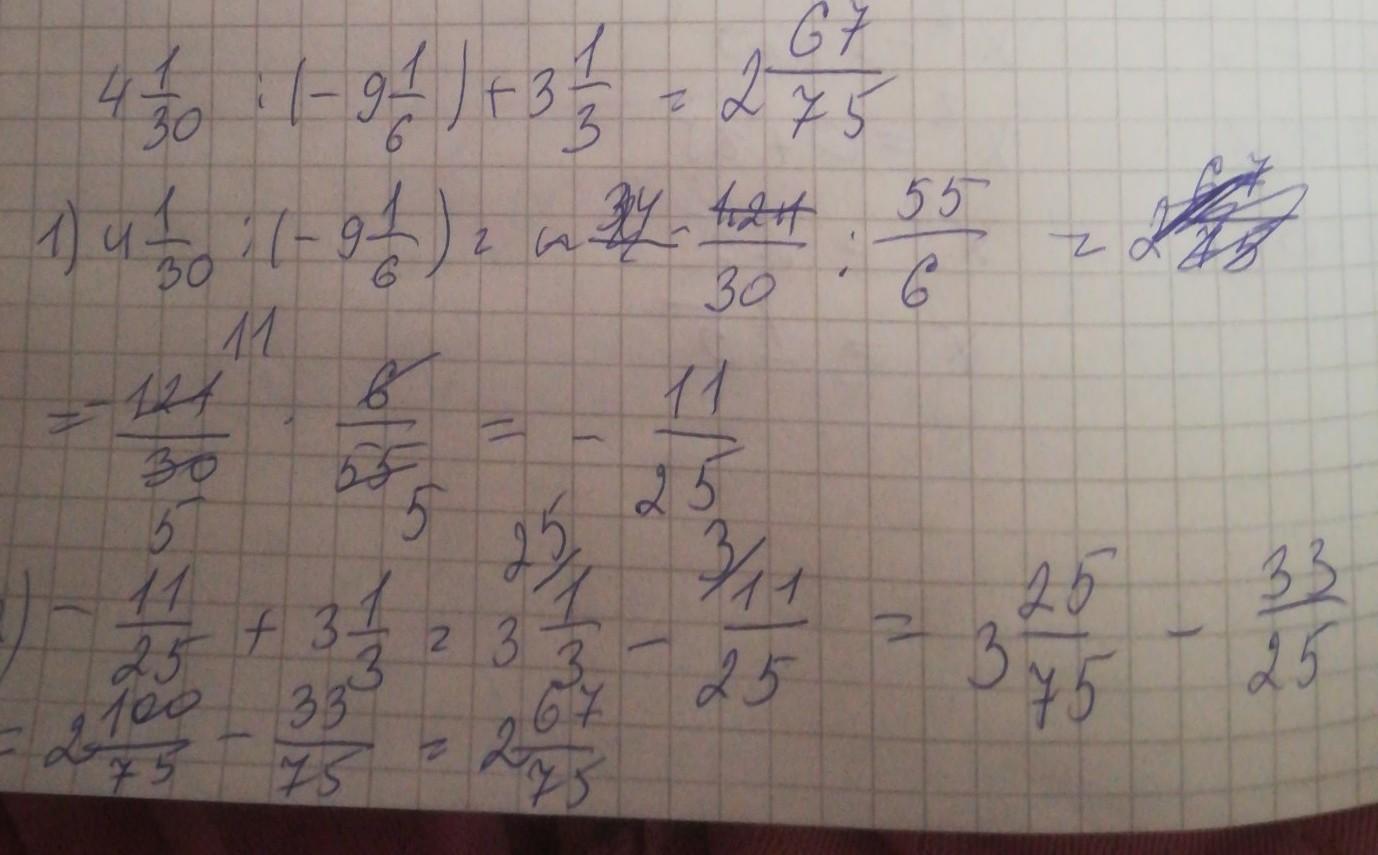 4 1/30 : (- 9 1/6) + 3 1/3 = 2 67/75
1) 4 1/30 : (- 9 1/6) = - 121/30 : 55/6 =
11
= - 121/30 · 6/55 = - 11/25
5 5 25/ 3/
) - 11/25 + 3 1/3 = 3 1/3 - 11/25 = 3 25/75 - 33/25
= 2 100/75 - 33/75 = 2 67/75